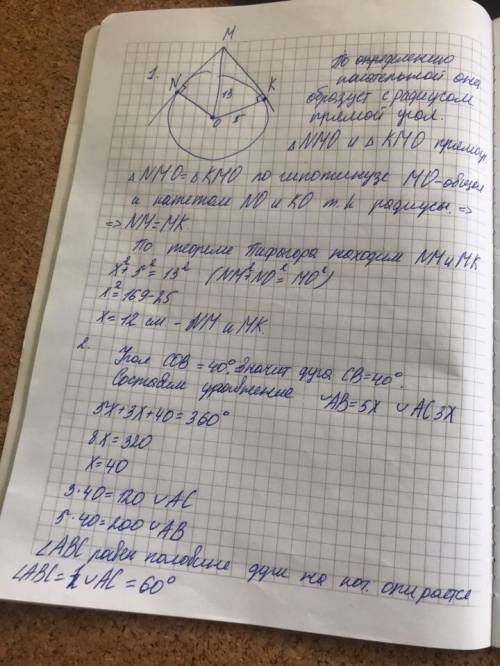 M
1.
N
K
13
5
O
По определению
касательной она
образует с радиусом
прямой угол.
△NMO и △KMO прямоуг.
△NMO=△KMO по гипотинузе MO-общая
и катетам NO и KO т.к радиусы. =>
=> NM=MK
По теореме Пифагора находим NM и MK
x²+5²=13² (NM²+NO²=MO²)
x²=169-25
x=12 см - NM и MK.
2.
Угол COB =40°. Значит дуга CB=40°.
Составим уравнение ◡AB=5x ◡AC 3x
5x+3x+40=360°
8x=320
x=40
3·40=120 ◡AC
5·40=200 ◡AB
∠ABC равен половине дуги на кот. опирается
∠ABC=½ ◡AC = 60°